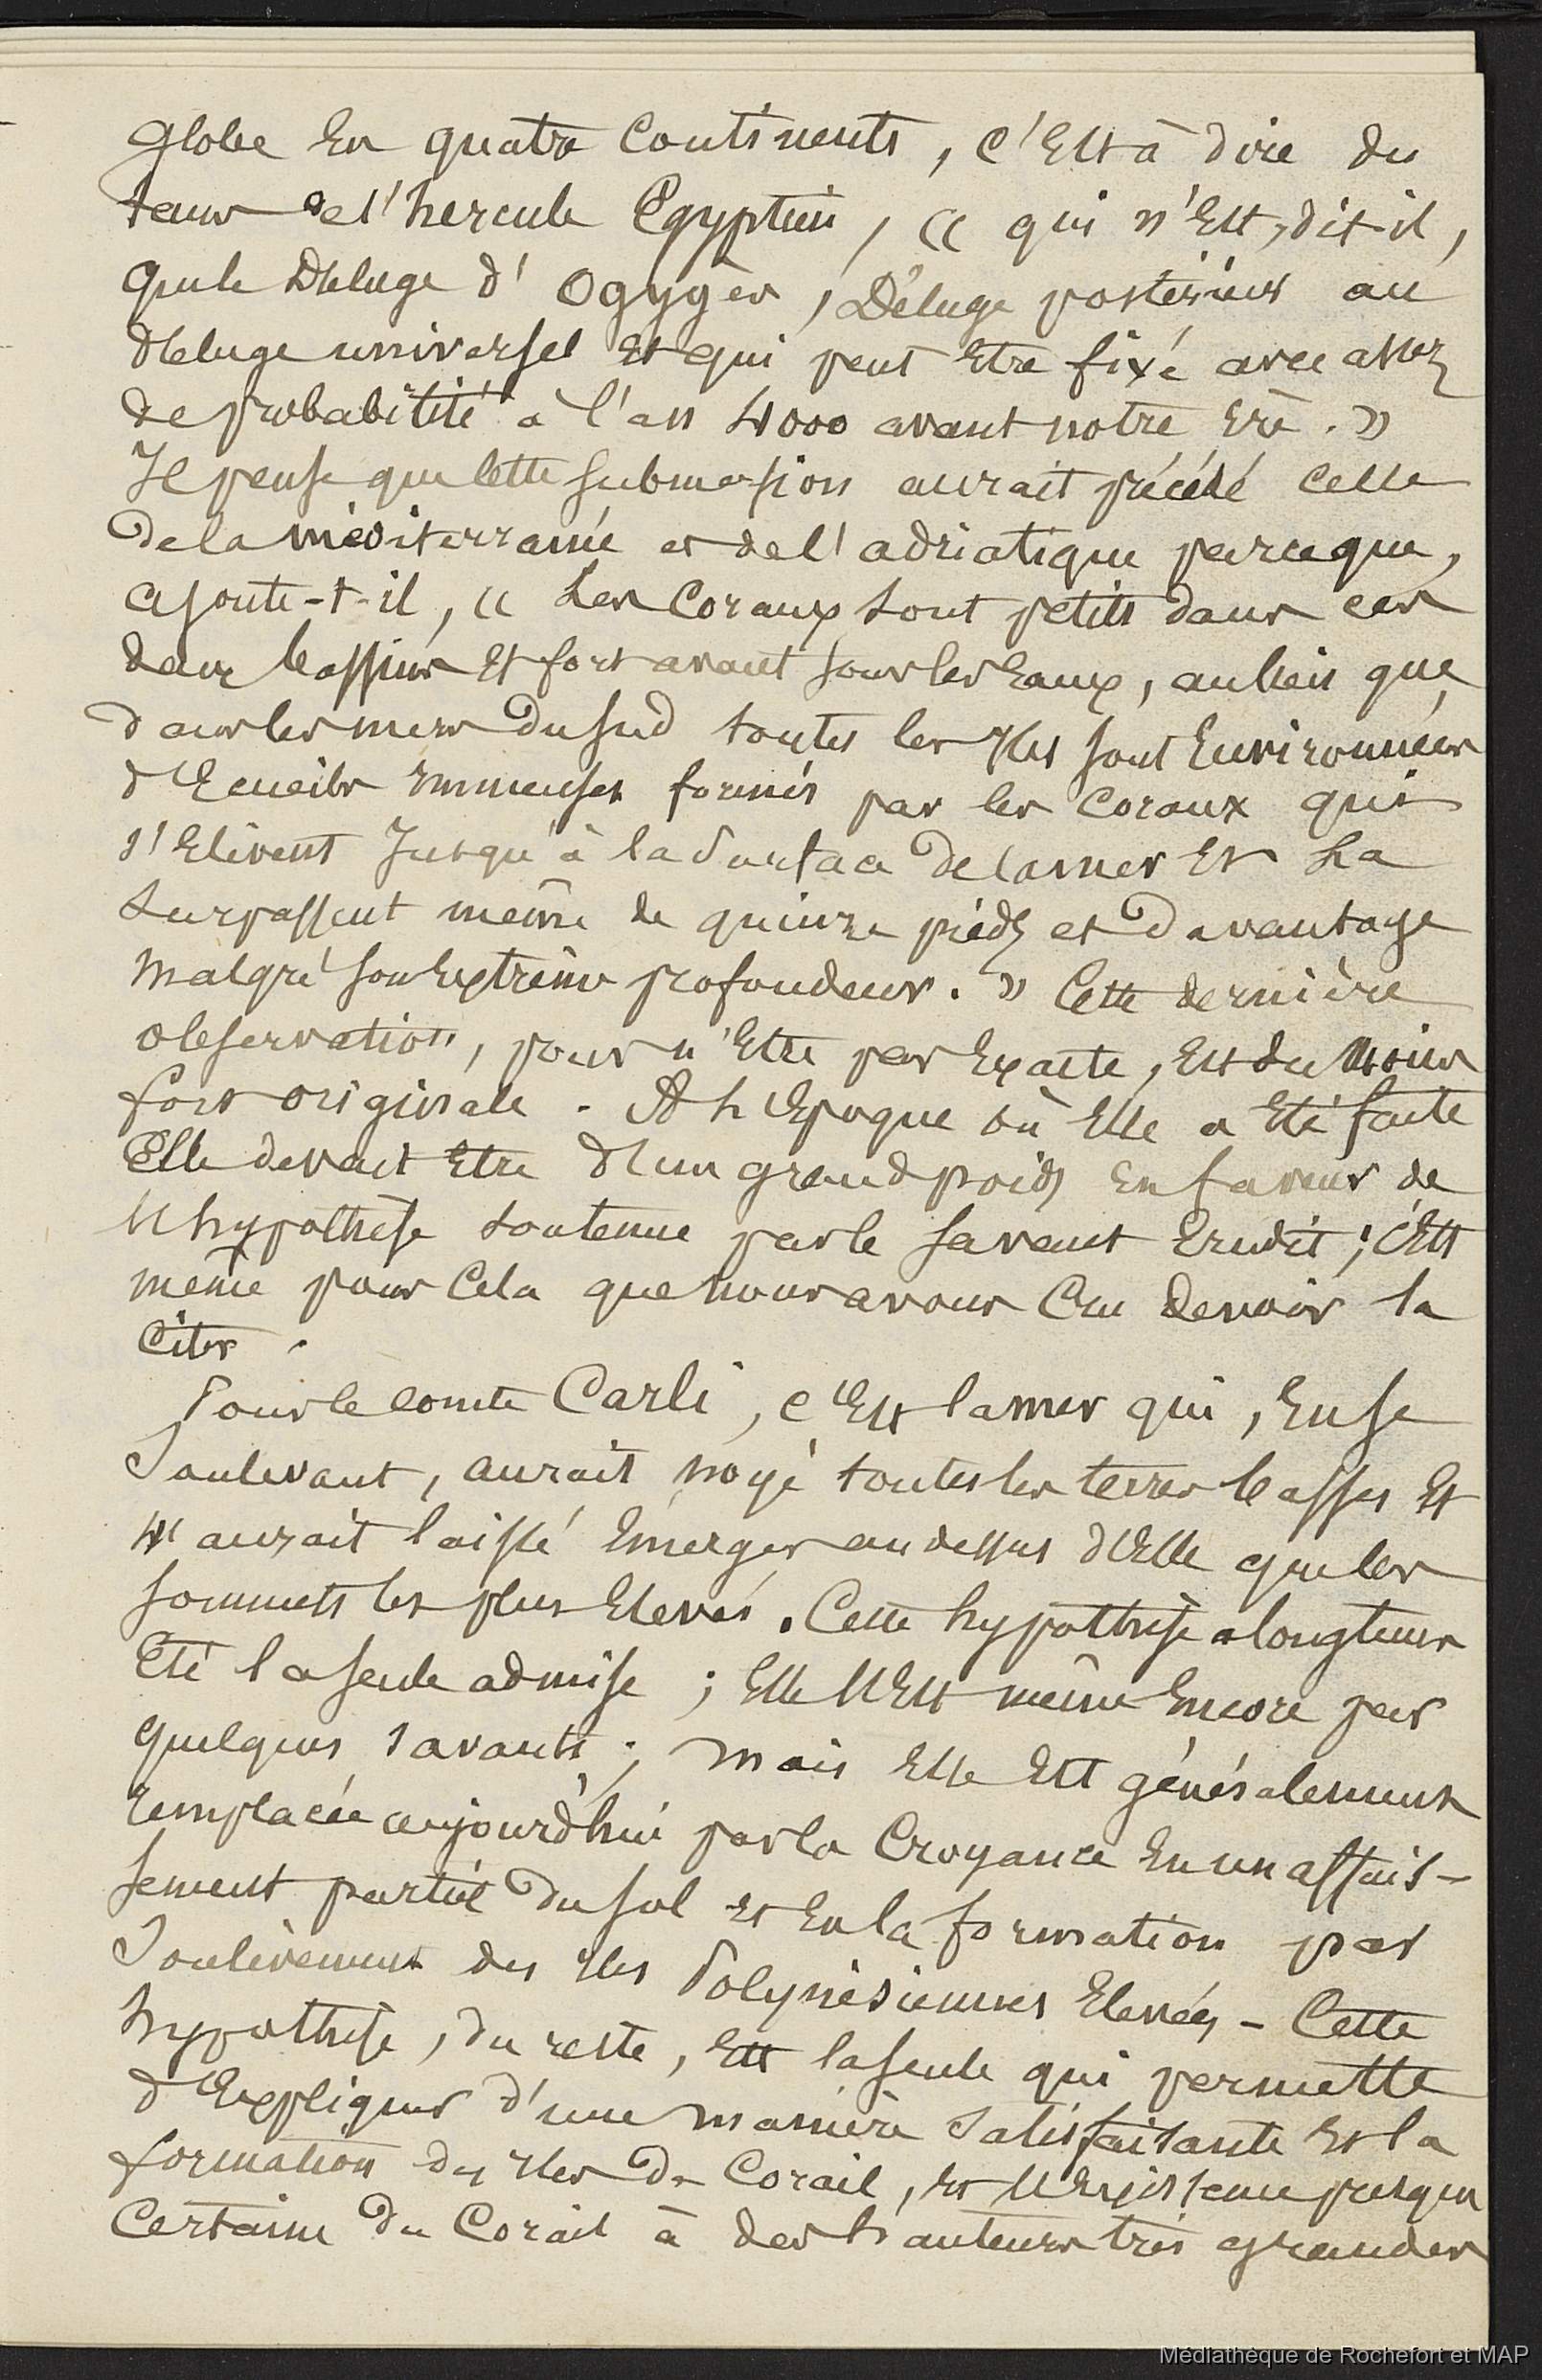 Globe En quatre Continents, c'Est à dire du
tems de l'hercule Egyptien, « qui n'Est, dit-il,
que le Déluge d'Ogygès, Déluge postérieur au
déluge universel Et qui peut Etre fixé avec assez
de probabilité à l'an 4000 avant notre Ere. »
Il pense que Cette submersion aurait précédé celle
de la méditerranée et de l'adriatique parceque,
ajoute-t-il, « Les Coraux sont petits dans ces
deux bassins Et fort avant sous les Eaux, au lieu que
dans les mers du sud toutes les Iles sont Environnées
d'Ecueils Immenses formés par les Coraux qui
s'Elèvent Jusqu'à la surface de la mer Et La
surpassent même de quinze pieds et davantage
malgré son Extrême profondeur. » Cette dernière
observation, pour n'Etre pas Exacte, Est du moins
fort originale. A l'Epoque où Elle a Eté faite
Elle devait Etre d'un grand poids En faveur de
l'hypothèse soutenue par le savant Erudit; c'Est
même pour Cela que nous avons Cru devoir la
Citer.
Pour le comte Carli, c'Est la mer qui, En se
Soulevant, aurait noyé toutes les terres basses Et
n'aurait laissé Emerger au dessus d'Elle que les
sommets les plus Elevés. Cette hypothèse a longtems
Eté la seule admise; Elle l'Est même Encore par
quelques savants; mais Elle Est généralement
remplacée aujourd'hui par la Croyance En un affais-
sement partiel du sol et En la formation par
Soulèvement des Iles Polynésiennes Elevées - Cette
hypothèse, du reste, Est la seule qui permette
d'Expliquer d'une manière satisfaisante Et la
formation des Iles de Corail, Et l'Existence presque
Certaine du Corail à des hauteurs très grandes
Médiathèque de Rochefort et MAP